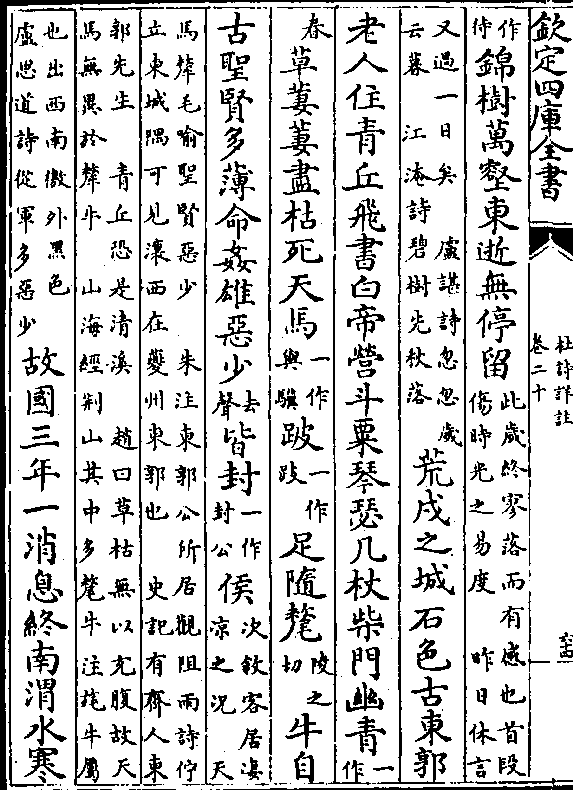 欽定四庫全書
杜詩詳註
卷二十
作待錦樹萬壑東逝無停留此歲終寥落而有感也首段傷時光之易度 昨日休言
又過一日矣 盧諶詩忽忽歲云暮 江淹詩碧樹先秋落荒戍之城石色古東郭
老人住青丘飛書白帝營斗粟琴瑟几杖柴門幽青一作
春草萋萋盡枯死天馬一作與驥跛一作跂足隨氂陵之切牛自
古聖賢多薄命姦雄惡少去聲皆封一作封公侯次敘客居凄凉之況 天
馬犛毛喻聖賢惡少 朱注東郭公所居觀阻雨詩佇立東城隅可見瀼西在夔州東郭也 史記有齊人東
郭先生 青丘恐是清溪 趙曰草枯無以充腹故天馬無異於犛牛 山海經荆山其中多氂牛注旄牛屬
也出西南徼外黑色盧思道詩從軍多惡少故國三年一消息終南渭水寒